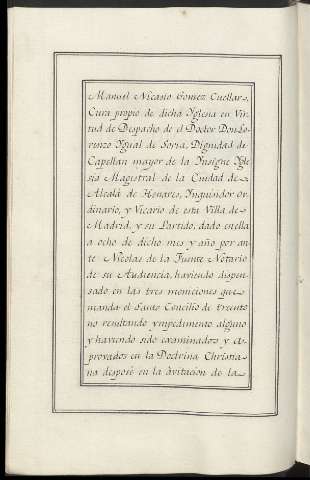 Manuel Nicasio Gomez Cuellar,
Cura propio de dicha Yglesia en Vir-
tud de Despacho de el Doctor Don Lo-
renzo Ygual de Soria, Dignidad de
Capellan mayor de la Ynsigne Ygle
sia Magistral de la Ciudad de
Alcalá de Henares, Ynquisidor or-
dinario, y Vicario de esta Villa de
Madrid, y su Partido, dado en ella
a ocho de dicho mes y año por an
te Nicolas de la Fuente Notario
de su Audiencia, haviendo dispen-
sado en las tres moniciones que
manda el Santo Concilio de trento
no resultando ympedimento alguno
y haviendo sido examinados y a-
provados en la Doctrina Christia-
na desposé en la âvitacion de la